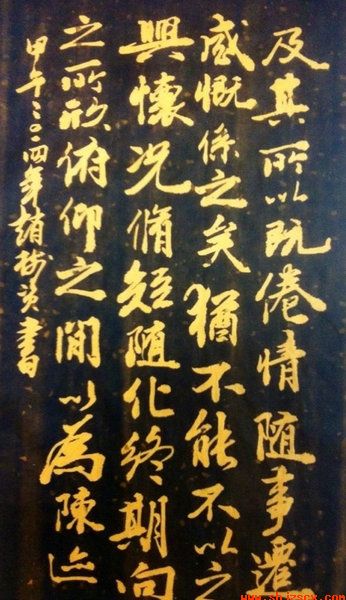 及其所以既倦情随事遷
感慨係之矣猶不能不以之
興懷况脩短随化終期向
之所欣俯仰之間以為陳迹
甲午二〇一四年趙樹書